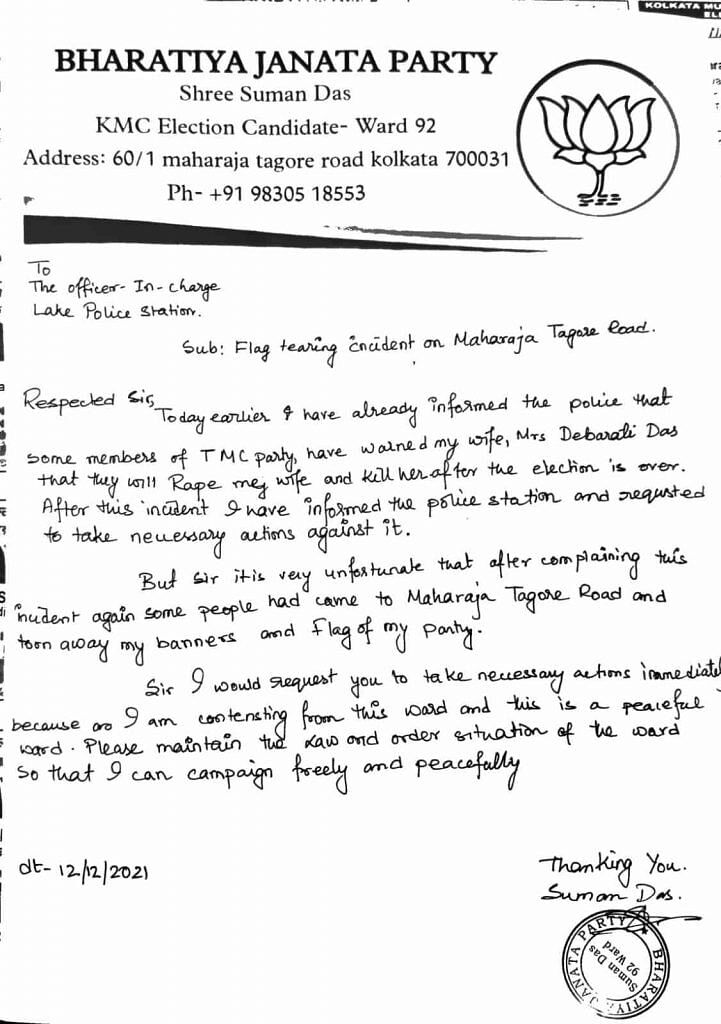 KOLKATA MU
EL
BHARATIYA JANATA PARTY
Shree Suman Das
KMC Election Candidate- Ward 92
Address: 60/1 maharaja tagore road kolkata 700031
Ph- +91 98305 18553
To
The officer- In- charge
Lake Police Station.
Sub: Flag tearing incident on Maharaja Tagore Road.
Respected Sir,
Today earlier I have already informed the police that
some members of TMC party, have warned my wife, Mrs Debarati Das
that they will Rape my wife and kill her after the election is over.
After this incident I have informed the police station and requsted
to take necessary actions against it.
But Sir it is very unfortunate that after complaining this
incident again some people had came to Maharaja Tagore Road and
torn away my banners and Flag of my party.
Sir I would request you to take necessary actions immediatel
because I am contensting from this ward and this is a peaceful
ward. Please maintain the Law and order situation of the ward
So that I can campaign freely and peacefully
dt- 12/12/2021
Thanking You.
Suman Das.
BHARATIYA JANATA PARTY
Suman Das
92 Ward